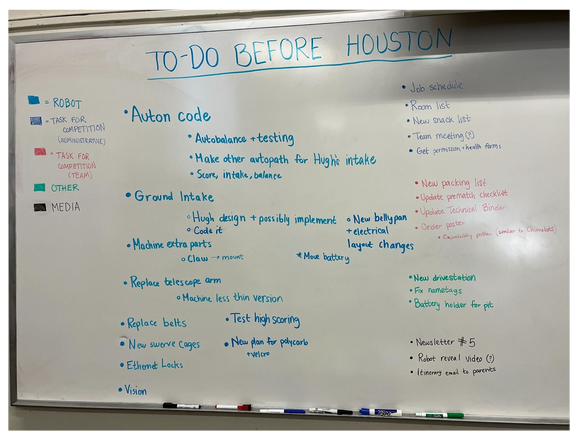 TO-DO BEFORE HOUSTON
= ROBOT
= TASK FOR
COMPETITION
(ADMINISTRATIVE)
= TASK FOR
COMPETITION
(TEAM)
= OTHER
= MEDIA
• Auton code
• Autobalance + testing
• Make other autopath for Hugh's intake
• Score, intake, balance
• Ground Intake
○ Hugh design + possibly implement
○ Code it
○ New bellypan
+ electrical
layout changes
• Machine extra parts
○ Claw → mount
* Move battery
• Replace telescope arm
• Machine less thin version
• Replace belts
• Test high scoring
• New swerve cages
• New plan for polycarb
+ velcro
• Ethernet Locks
• Vision
• Job schedule
• Room list
• New snack list
• Team meeting (?)
• Get permission + health forms
• New packing list
• Update prematch checklist
• Update Technical Binder
• Order poster
(similar to Chinabots)
• New drivestation
• Fix nametags
• Battery holder for pit
• Newsletter #5
• Robot reveal video (?)
• Itinerary email to parents